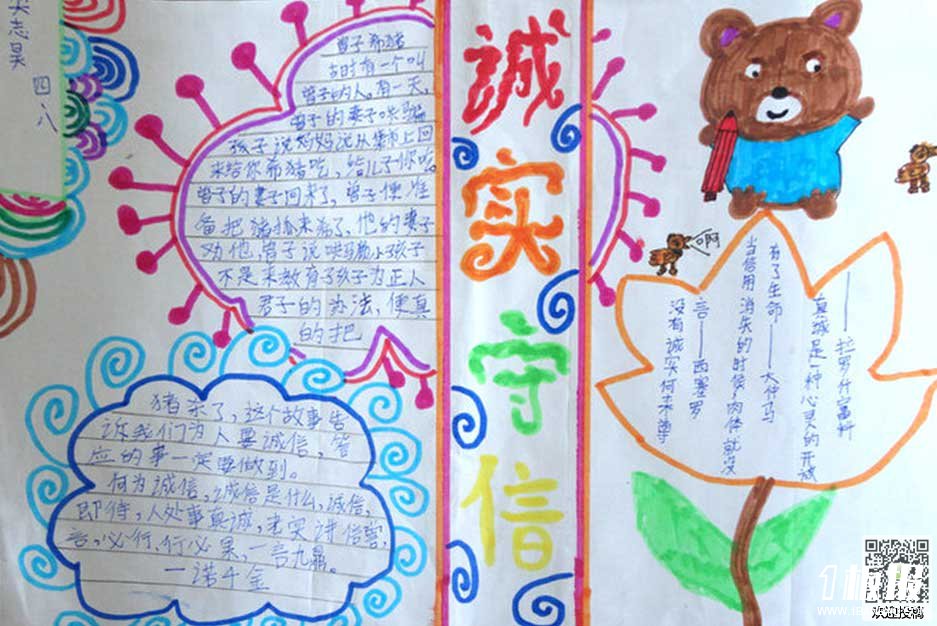 志昊
四、八
曾子希猪
古时有一个叫
曾子的人,有一天,
曾子的妻子哄骗
孩子说妈妈说从集市上回
来给你希猪吃,给儿子你吃。
曾子的妻子回来了,曾子便准
备把猪抓来杀了,他的妻子
劝他,曾子说哄骗小孩子
不是来教育子孩子为正人
君子的办法,便真
的把
猪杀了,这个故事告
诉我们为人要诚信,答
应的事一定要做到。
何为诚信,诚信是什么,诚信,
即待,人处事真诚,老实讲信誉,
言,必行、行必果,一言九鼎。
一诺千金
诚
实
守
信
啊
——拉罗什富科
真诚是一种心灵的开放
有了生命——大仲马
当信用消失的时候,肉体就没
言——西塞罗
没有诚实何来尊
1板报
欢迎投稿